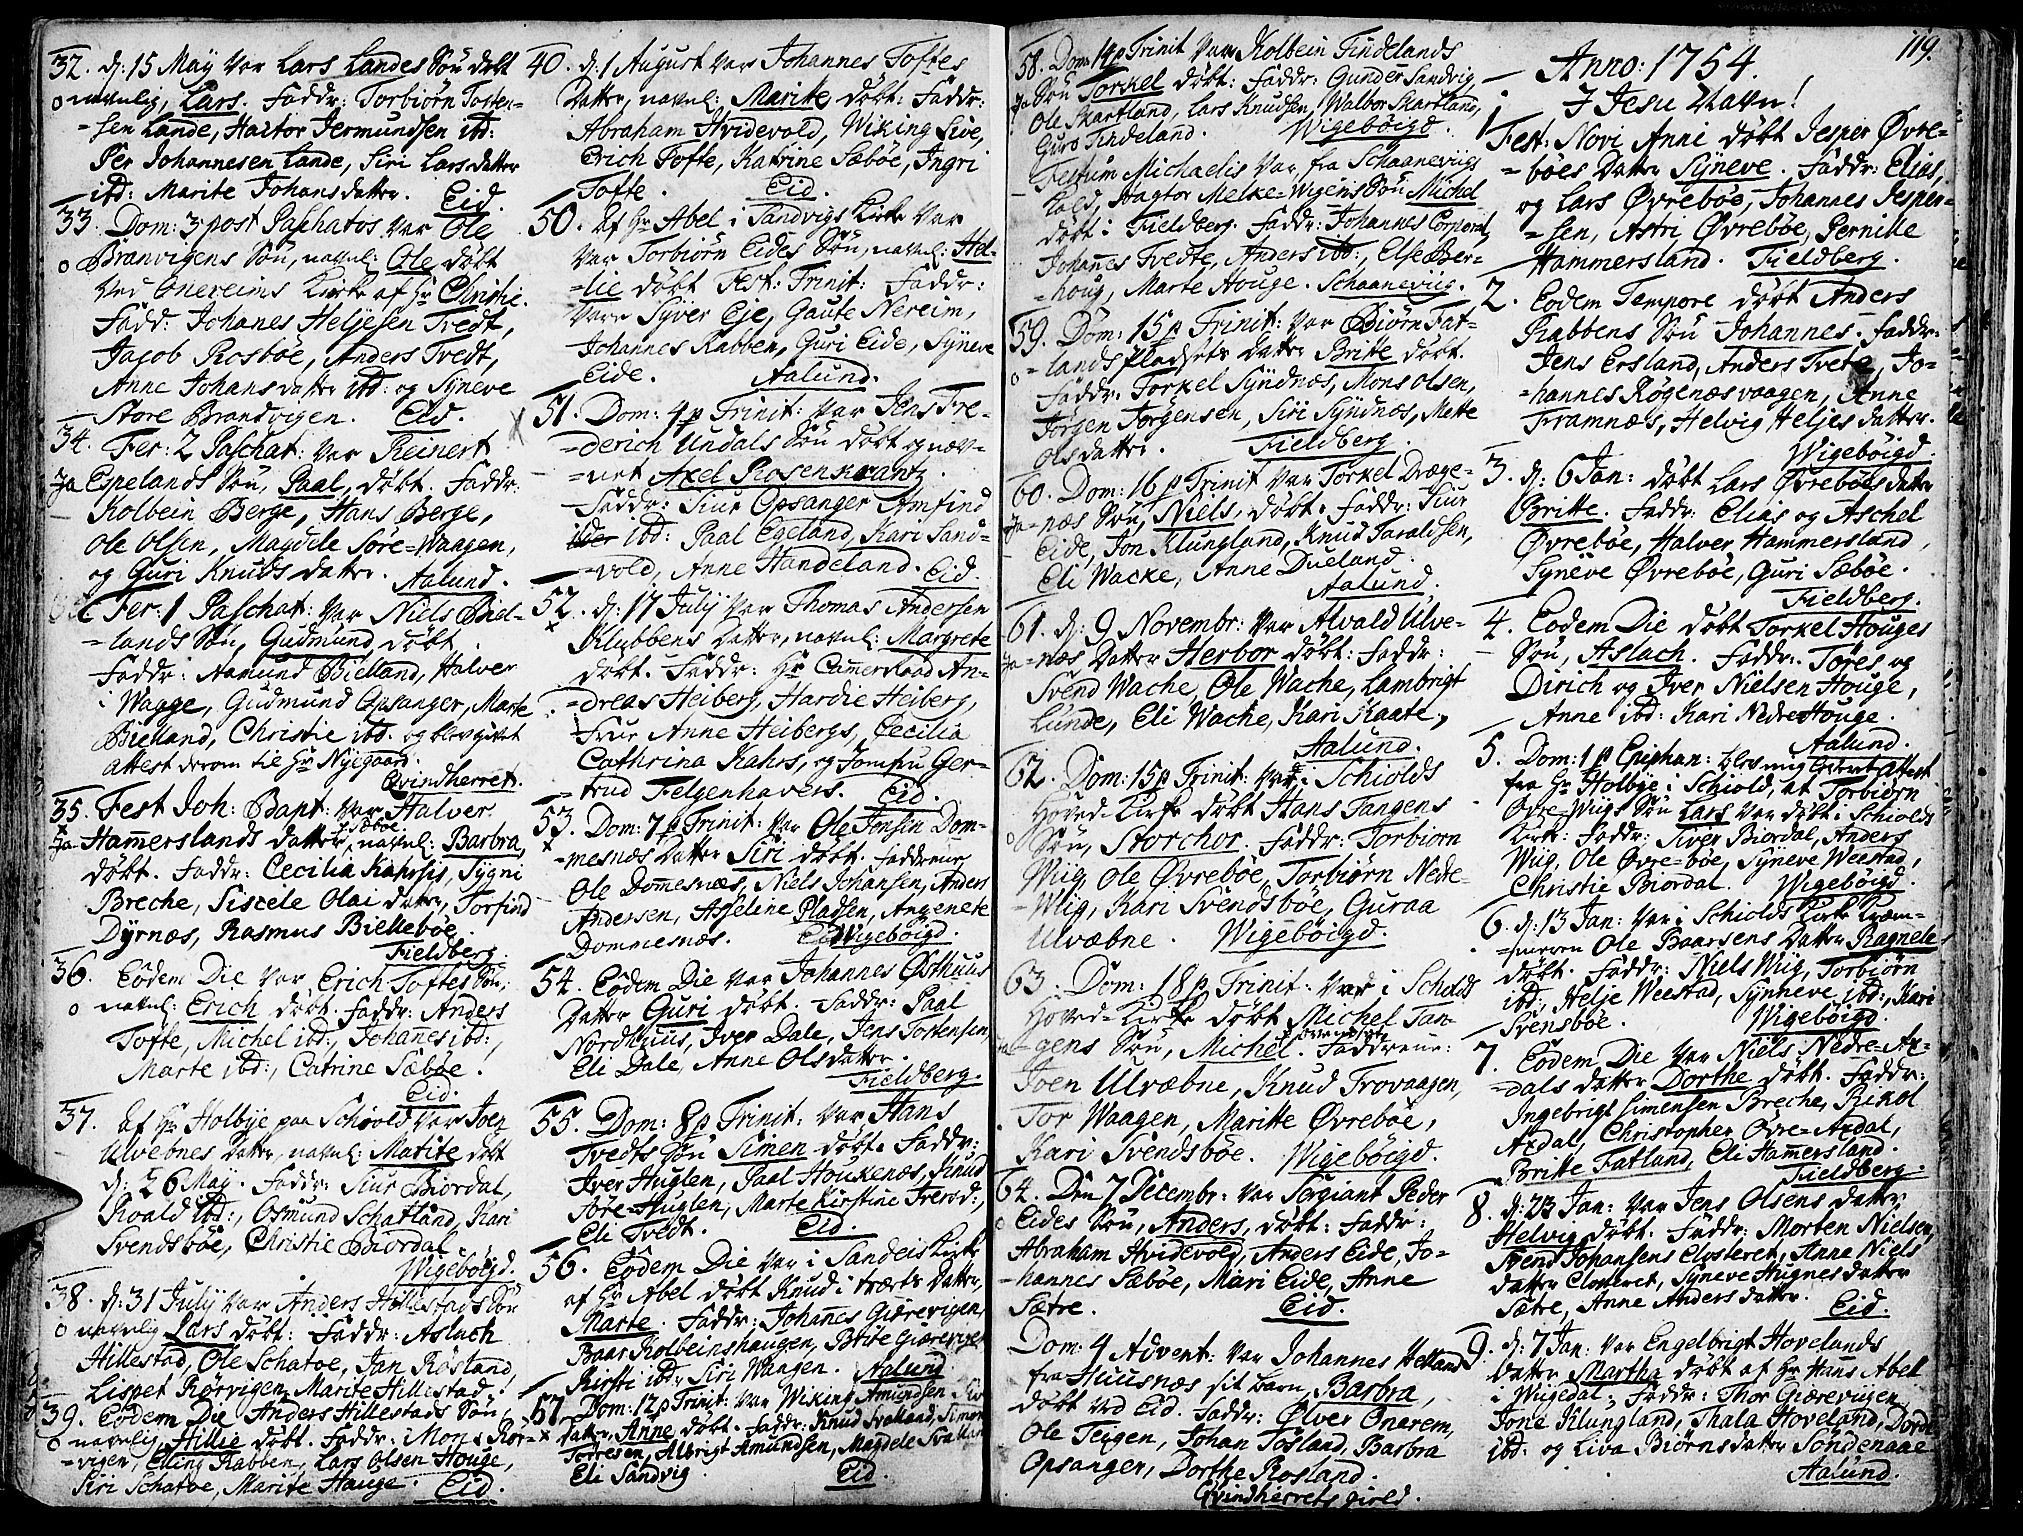 32. d: 15 May var Lars Landes Søn døbt
navnlig, Lars. Faddr: Torbiørn Tosten-
=sen Lande, Hactor Jermundsen ibd:
Per Johannesen Lande, Siri Larsdatter
ibd: Marite Johansdatter. Eid.
33. Dom: 3 post Paschatos var Ole
o Branvigens Søn, navnl: Ole døbt
ved Enereims Kirke af Hr Christie.
Fadd: Johanes Heljesen Tvedt,
Jacob Rosbøe, Anders Tvedt,
Anne Johansdatter ibd: og Syneve
Store Brandvigen. Eid.
34. Fer: 2 Paschat: var Reinert
Ja Espelands Søn, Paal, døbt. Faddr:
Kolbein Berge, Hans Berge,
Ole Olsen, Magdele Søre=Waagen,
og Guri Knudsdatter. Aalund.
Fer: 1 Paschat: var Niels Biel-
=lands Søn, Gudmund, døbt.
Faddr: Aamund Bielland, Halver
i Wagge, Gudmund Opsanger, Marte
Bielland, Christie ibd: og blev givet
attest derom til Hr Nyegaard.
Qvindherret.
35. Fest Joh: Bapt: var Halver
Ja Hammerslands datter, navnl: Barbra,
døbt. Faddr: Cecilia Kahrsis, Sygni
Breche, Siscele Olai datter, Torfind
Dyrnæs, Rasmus Biellebøe.
Fieldberg.
36. Eodem Die var Erich Toftes Søn,
o navnl: Erich døbt. Faddr: Anders
Tofte, Michel ibd:, Johanes ibd:,
Marte ibd:, Catrine Sæbøe.
Eid.
37. Af Hr Holbye paa Schiold var Joen
Ulvebnes Datter, navnl: Marite døbt
d: 26 May. Faddr: Siur Biordal,
Roald ibd:, Osmund Schatland, Kari
Svendsbøe, Christie Biordal.
Wigebøigd.
38. d: 31 July var Anders Hillestads Søn
o navnlig Lars døbt: Faddr: Aslach
Hillestad, Ole Schatøe, Jan Røsland,
Lispet Rørvigen, Marite Hillestad.
39. Eodem Die Anders Hillestads Søn,
o navnlig, Hillie døbt. Faddr: Mons Rør-
=vigen, Elling Rabben, Lars Olsen Houge,
Siri Schatøe, Marite Hauge. Eid.
40. d: 1 August var Johannes Toftes
Datter, navnl: Marite døbt: Faddr:
Abraham Hvidevold, Wiking Live,
Erich Tofte, Katrine Sæbøe, Ingri
Tofte. Eid.
50. Af Hr Abel i Sandvigs Kirke var
var Torbiørn Eides Søn, navnl: Hel-
=lie døbt Fest: Trinit: Faddr:
vare Syver Eje, Gaute Nereim,
Johannes Rabben, Guri Eide, Syneve
Eide. Aalund.
51. Dom: 4 p Trinit: var Jens Fre-
=derich Undals Søn døbt og næv-
=net Axel Rosenkrantz.
Faddr: Siur Opsanger Amfind
ibd: Paal Egeland, Kari Sand=
=vold, Anne Handeland. Eid.
52. d: 17 July var Thomas Andersen
x Klubbens Datter, navnl: Margrete
døbt. Faddr: Hr CammerRaad An-
=dreas Heiberg, Hardie Heiberg,
Frue Anne Heibergs, Cecilia
Cathrina Kahrs, og Jomfru Ger-
=trud Felgenhavers. Eid.
53. Dom: 7 p Trinit: var Ole Jonsen Dom-
x =mesnæs Datter Siri døbt. Faddrene
Ole Domesnæs, Niels Johansen, Anders
Andersen, Asseline Pladsen, Angenete
Dommesnæs. Wigebøigd.
54. Eodem Die var Johannes Østhuus
Datter Guri døbt. Faddr: Paal
Nordhuus, Iver Dale, Jens Tostensen,
Eli Dale, Anne Olsdatter.
Fieldberg.
55. Dom: 8 p Trinit: var Hans
Tvedts Søn Simen døbt. Faddr:
Iver Huglen, Paal Houkenæs, Knud
Søre=Huglen, Marte Kirstine Trerød:,
Eli Tvedt. Eid.
56. Eodem Die var i Sandeis Kirke
af Hr Abel døbt Knud i Datter,
Marte. Faddr: Johanes Giærevigen,
Baar Kolbeinshaugen, Brite Giærevigen
Kirsti ibd: Siri Waagen. Aalund.
57. Dom: 12 p Trinit: var Wiking Amundsen
x datter, Anne døbt. Faddr: Knud Svalland, Simon
Torresen, Albrigt Amundsen, Magdele Svalland
Eli Sandvig. Eid.
58. Dom: 14 p Trinit var Kolbein Tindelands
Ja Søn Torkel døbt: Faddr: Gunder Sandvig
Ole Skartland, Lars Knudsen, Walbor Skartland,
Guro Tindeland. Wigebøigd.
Festum Michaelis var fra Schaaneviigs
Hagtor Melke=Wigens Søn Michel
døbt i Fieldberg. Faddr: Johannes Corporal,
Johanes Tvedte, Anders ibd:, Else Ber-
=houg, Marte Houge. Schaaneviig.
59. Dom: 15 p Trinit: var Biørn Fat-
o =lands Pladsets Datter Britte døbt.
Faddr: Torkel Syndnæs, Mons Olsen,
Jørgen Jørgensen, Siri Syndnæs, Mette
Olsdatter. Fieldberg.
60. Dom: 16 p Trinit var Torkel Dræge-
Ja =næs Søn, Niels, døbt. Faddr: Siur
Eide, Jon Klungland, Knud Taraldsen,
Eli Wacke, Anne Dueland.
Aalund.
61. d: 9 Novembr: var Alvald Ulve-
Ja =næs Datter Herbor døbt: Faddr:
Svend Wache, Ole Wache, Lambrigt
Lunde, Eli Wache, Kari Kaate.
Aalund.
62. Dom: 15 p Trinit: var i Schiolds
Hoved=Kirke døbt Hans Tangens
o Søn, Storchor. Faddr: Torbiorn
Wiig, Ole Øvrebøe, Torbiørn Nedre-
=Wiig, Kari Svendsbøe, Guraa
Ulvæbne. Wigebøigd.
63. Dom: 18 p Trinit: var i Schiolds
Hoved=Kirke døbt Michel Tan-
=gens Søn, Michel. Faddrene:
Joen Ulvæbne, Knud Trovaagen,
Tor Waagen, Maritte Øvrebøe,
Kari Svendsbøe. Wigebøigd.
64. Den 7 Decembr: var Sergiant Peder
o Eides Søn, Anders, døbt: Faddr:
Abraham Hvidevold, Anders Eide, Jo-
=hannes Sæbøe, Mari Eide, Anne
Sætre. Eid.
Dom: 4 Advent: var Johannes Helland
fra Huusnæs sit barn, Barbra,
døbt ved Eid. Faddr: Ølver Onarem,
Ole Teigen, Johan Tosland, Barbra
Opsanger, Dorthe Rosland.
Qvindherrets gield.
119.
Anno: 1754.
I Jesu Navn!
1. Fest: Novi Anni døbt Jesper Øvre-
=bøes Datter Syneve. Faddr: Elias,
og Lars Øvrebøe, Johannes Jesper-
=sen, Astri Øvrebøe, Pernille
Hammersland. Fieldberg.
2. Eodem Tempore døbt Anders
Rabbens Søn Johannes. Faddr:
Jens Ersland, Anders Tvete, Jo-
=hannes Røgenæsvaagen, Anne
Framnæs, Helvig Heljesdatter.
Wigebøigd.
3. d: 6 Jan: døbt Lars Øvrebøes datter
Britte. Faddr: Elias og Aschel
Øvrebøe, Halver Hammersland,
Syneve Øvrebøe, Guri Sæbøe.
Fieldberg.
4. Eodem Die døbt Torkel Houges
Søn, Aslach. Faddr: Tøres og
Dirich og Iver Nielsen Houge,
Anne ibd: Kari NedreHouge.
Aalund.
5. Dom: 1 p Epiphan: blev mig attest
fra Hr Holbye i Schiold, at Torbiørn
Øvre=Wiigs Søn Lars var døbt i Schiolds
Kirk: Faddr: Siver Biordal, Anders
Wiig, Ole Øvre=bøe, Syneve Weestad,
Christie Biordal. Wigebøigd.
6. d: 13 Jan: var i Schiolds Kirke Kræm-
=meren Ole Baarsens Datter Ragnele
døbt. Faddr: Niels Wiig, Torbiørn
ibd:, Helje Weestad, Synneve ibd:, Kari
Svensbøe. Wigebøigd.
7. Eodem Die var Niels Nedre-Ax-
=dals datter Dorthe døbt. Faddr:
Ingebrigt Simensen Breche, Rikol
Axdal, Christopher Øvre=Axdal,
Britte Fatland, Eli Hamersland.
Fieldberg.
8. d: 23 Jan: var Jens Olsens datter
Helvig døbt. Faddr: Morten Nielsen,
Svend Johansens Closteret, Anne Niels
datter Closteret, Syneve Hugnes datter
Sætre, Anne Anders datter. Eid.
9. d: 7 Jan: var Engelbrigt Hovelands
datter Martha døbt af Hr Hans Abel
i Wigedal; Faddr: Thor Giærevigen
Jone Klungland, Thala Hoveland, Dorde
ibd: og Liva Biørnsdatter Søndenaae
Aalund.